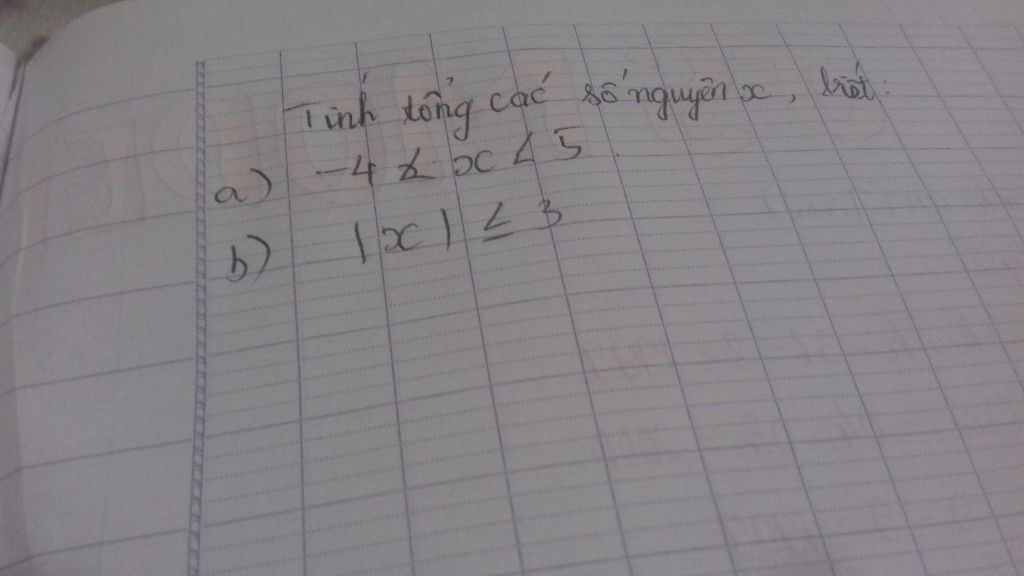 Tính tổng các số nguyên x, biết:
a) -4 < x < 5.
b) |x| ≤ 3